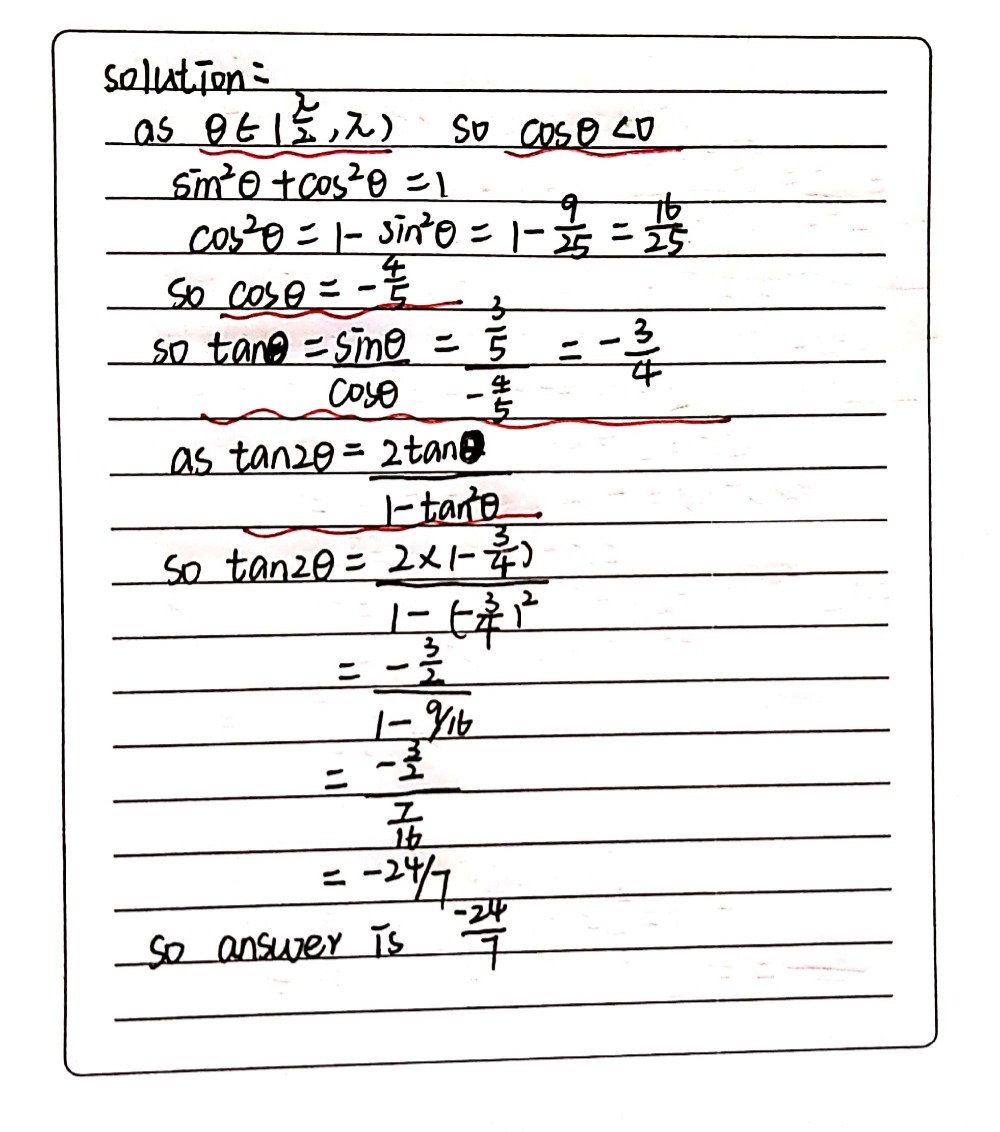 solution=
as θ∈(π/2,π) so cosθ<0
sin²θ+cos²θ=1
cos²θ=1-sin²θ=1-9/25=16/25
so cosθ=-4/5
so tanθ=sinθ/cosθ=(3/5)/(-4/5)=-3/4
as tan2θ=2tanθ/(1-tan²θ)
so tan2θ=(2×(-3/4))/(1-(-3/4)²)
=(-3/2)/(1-9/16)
=(-3/2)/(7/16)
=-24/7
so answer is -24/7